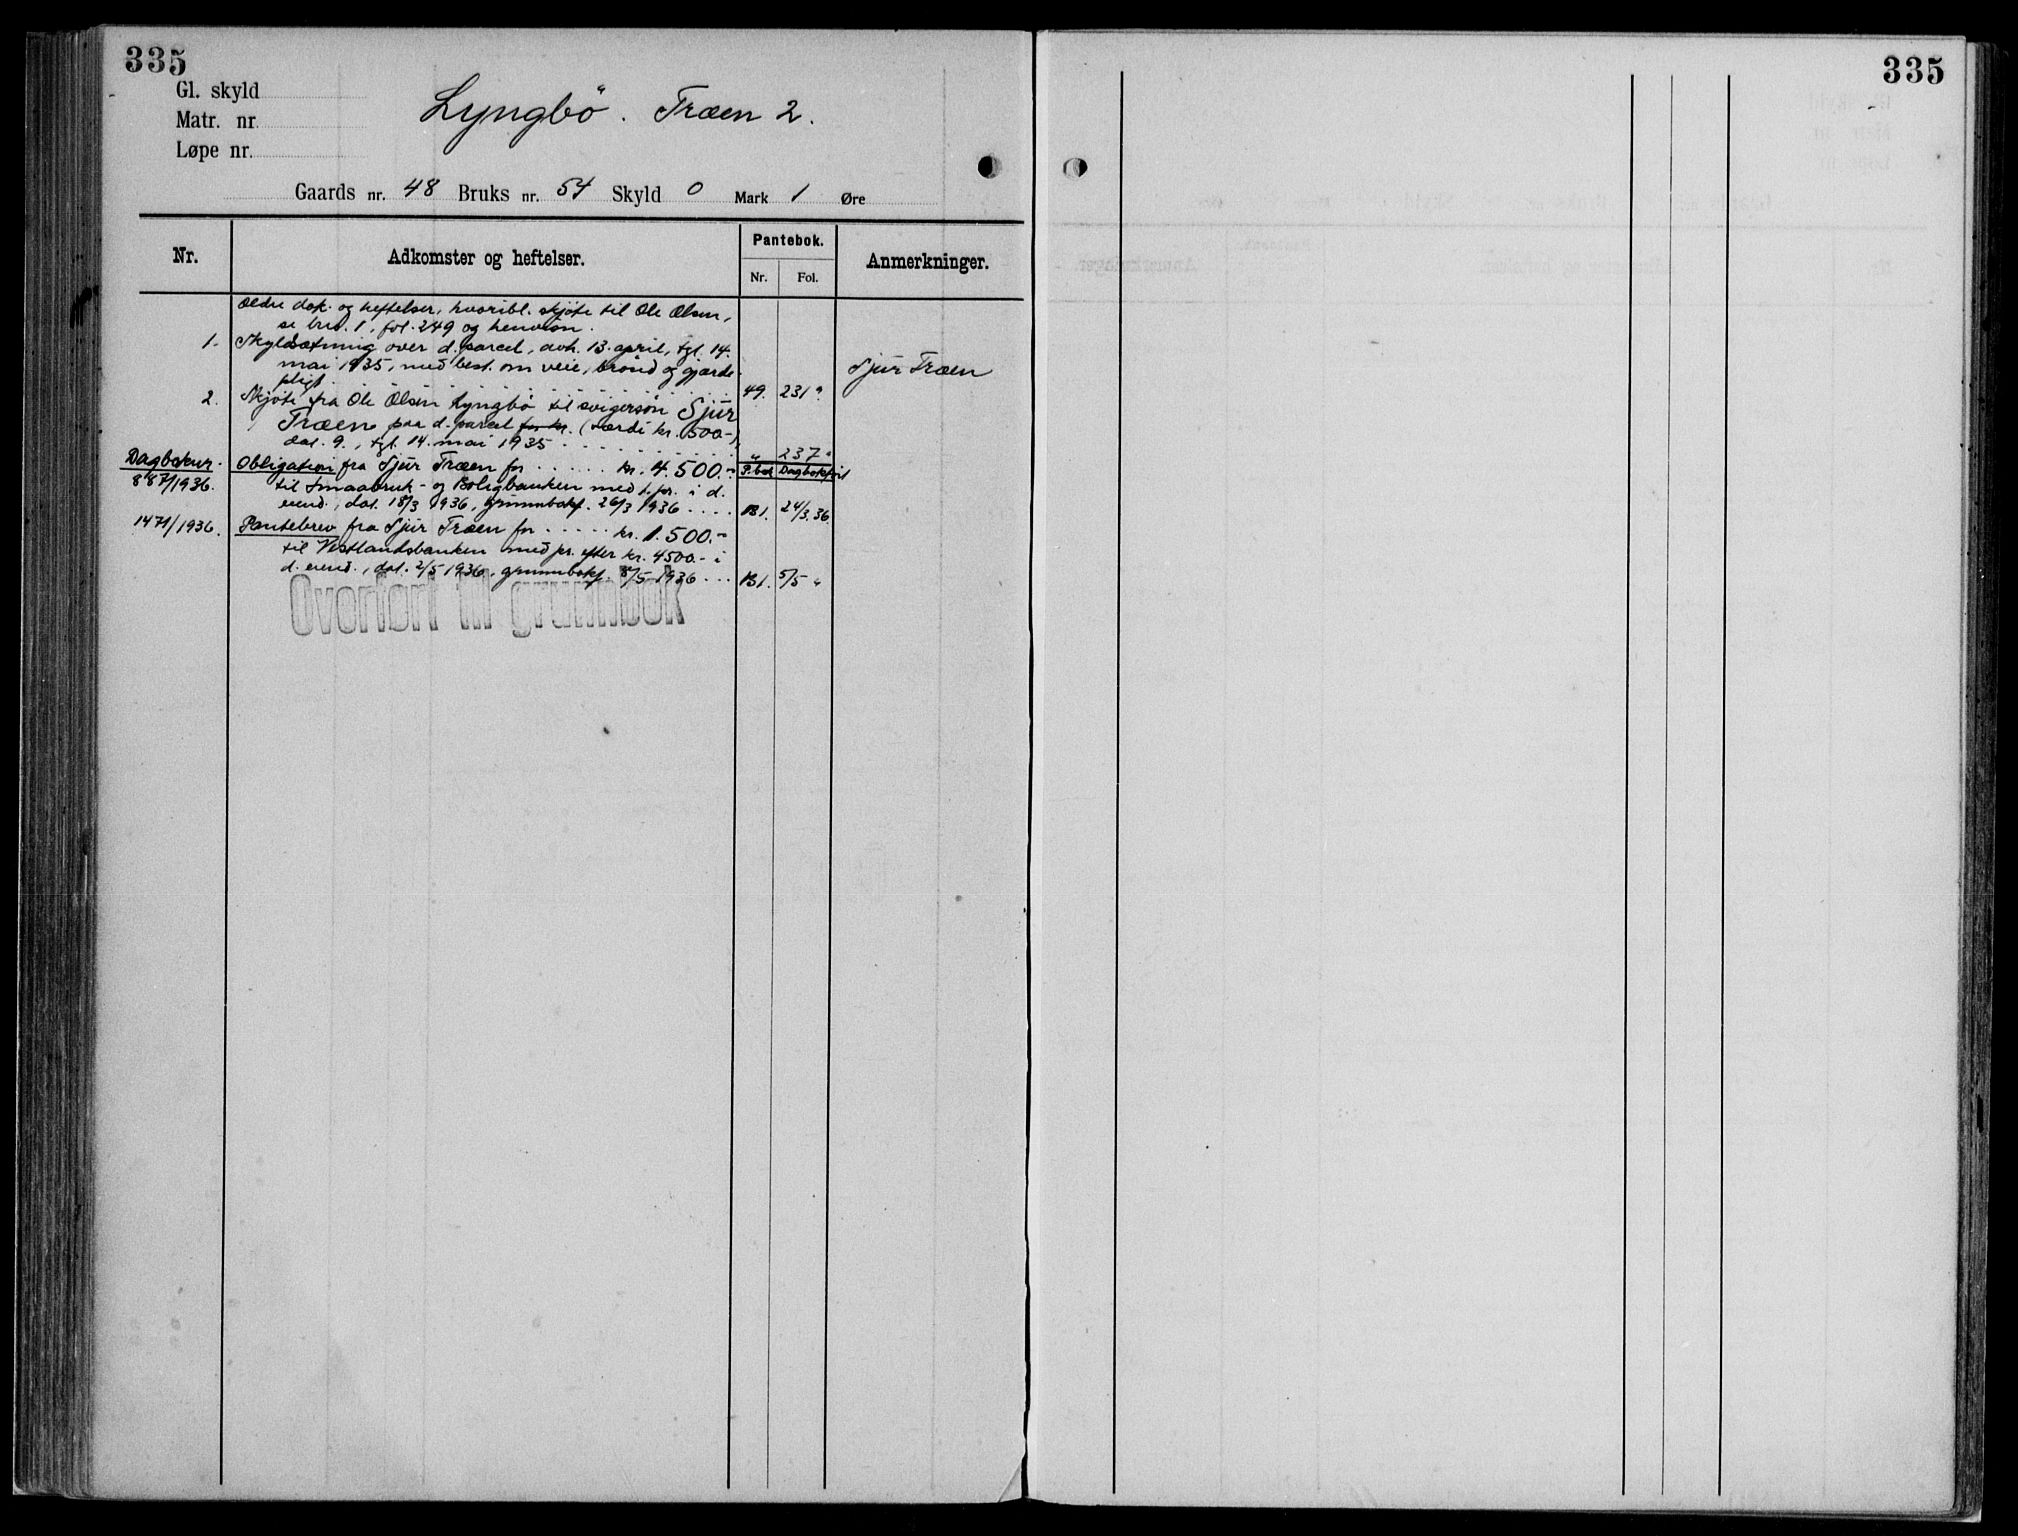 335
Gl. skyld
Matr. nr.
Løpe nr.
Lyngbö. Træen 2.
Gaards nr. 48 Bruks nr. 54 Skyld 0 Mark 1 Øre
Nr. Adkomster og heftelser. Pantebok. Anmerkninger.
Nr. Fol.
Ældre dok. og heftelser, hvoribl. skjöte til Ole Olsen,
se br.nr. 1, fol. 249 og henvisn.
1. Skyldsætning over d. parcel, avh. 13. april, tgl. 14.
mai 1935, med best. om veie, brönd og gjærde-
pligt . . . 49. 231a
Sjur Træen
2. Skjöte fra Ole Olsen Lyngbö til svigersön Sjur
Træen paa d. parcel for kr. (værdi kr. 500-)
dat. 9., tgl. 14. mai 1935 . . . " 237a
Dagboknr. Obligation fra Sjur Træen for . . . kr. 4.500.- P.bok Dagbokført
887/1936. til Smaabruk- og Boligbanken med 1. pr. i d.
eiend., dat. 18/3 1936, grunnbokf. 26/3 1936 . . . . B1. 24/3.36.
1471/1936. Pantebrev fra Sjur Træen for . . . kr. 1.500.-
til Vestlandsbanken med pr. efter kr. 4500.- i
d. eiend., dat. 2/5 1936, grunnbokf. 8/5 1936 . . . B1. 5/5 "
Overført til grunnbok
335